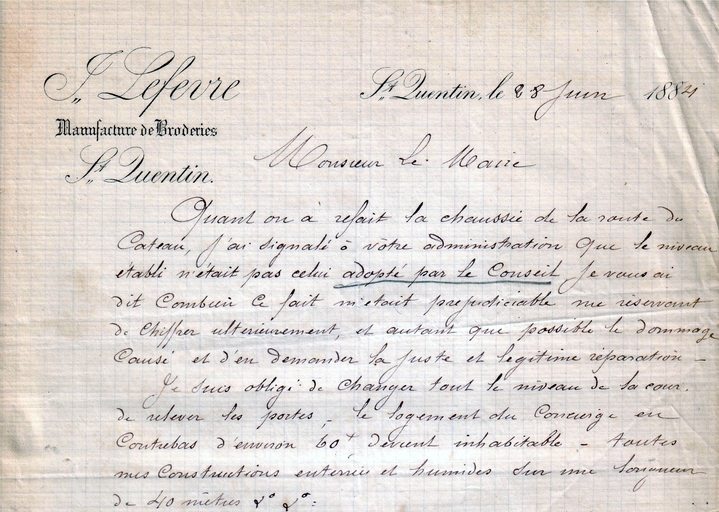 J. Lefevre
St Quentin, le 28 Juin 1884
Manufacture de Broderies
St Quentin.
Monsieur Le Maire
Quant on à refait la chaussée de la route du
Cateau, j'ai signalé à votre administration que le niveau
établi n'était pas celui adopté par le Conseil Je vous ai
dit Combien Ce fait m'était prejudiciable me réservant
de Chiffrer ulterieurement, et autant que possible le dommage
Causé et d'en demander la juste et legitime réparation -
Je suis obligé de Changer tout le niveau de la cour.
de relever les portes, - le logement du Concierge en
Contrebas d'environ 60 devient inhabitable - toutes
mes Constructions enterrées et humides sur une longueur
de 40 mètres